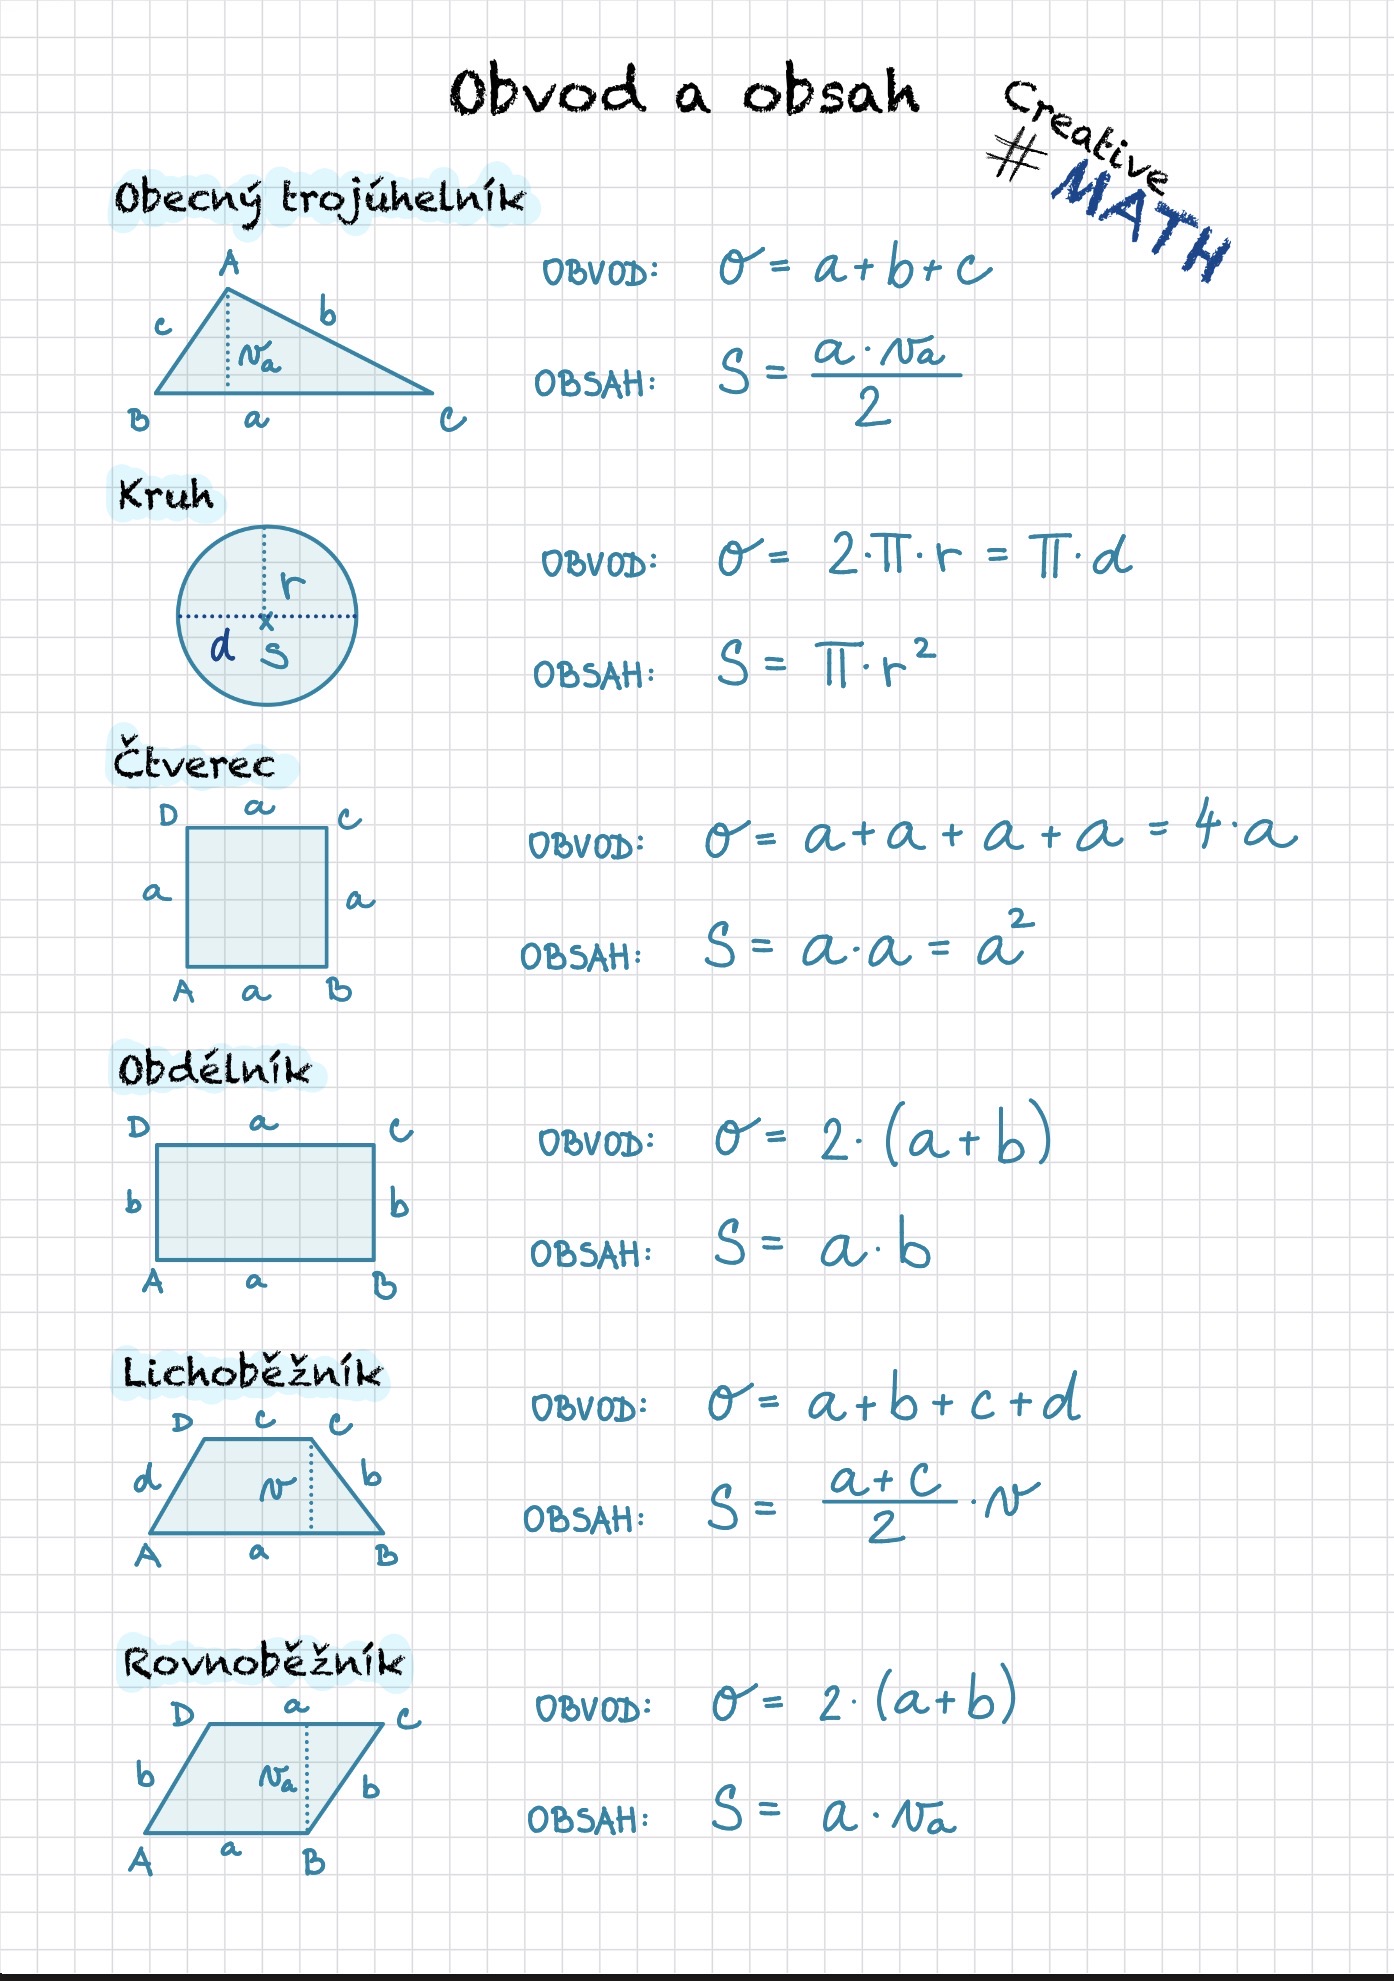 Obvod a obsah
Creative
# MATH
Obecný trojúhelník
A
c
b
vₐ
B
a
C
OBVOD: o = a+b+c
OBSAH: S = a · vₐ / 2
Kruh
r
d
S
OBVOD: o = 2·π·r = π·d
OBSAH: S = π·r²
Čtverec
D
a
C
a
a
A
a
B
OBVOD: o = a+a+a+a = 4·a
OBSAH: S = a·a = a²
Obdélník
D
a
C
b
b
A
a
B
OBVOD: o = 2·(a+b)
OBSAH: S = a·b
Lichoběžník
D
c
C
d
v
b
A
a
B
OBVOD: o = a+b+c+d
OBSAH: S = a+c / 2 · v
Rovnoběžník
D
a
C
b
vₐ
b
A
a
B
OBVOD: o = 2·(a+b)
OBSAH: S = a · vₐ